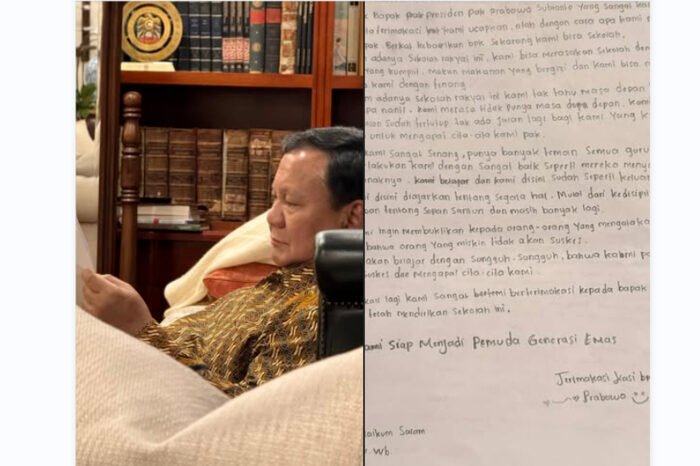 Bapak Presiden Pak Prabowo Subianto Yang Sangat
terimakasi kami ucapkan, entah dengan cara apa kami
pak. Berkat kebaikan bpk Sekarang kami bisa sekolah.
adanya Sekolah rakyat ini, kami bisa merasakan sekolah
Yang kumpul, Makan makanan Yang bergizi dan kami bisa
kami dengan tenang.
adanya sekolah rakyat ini kami tak tahu masa depan
apa nanti. kami merasa tidak punya masa depan. kami
Sudah tertutup tak ada jalan lagi bagi kami Yang
untuk mengapai cita-cita kami pak.
kami Sangat Senang, punya banyak teman Semua guru
kami dengan Sangat baik Seperti mereka
kami belajar dan kami disini Sudah Seperti
disini diajarkan tentang Segala hal. Mulai dari
tentang Sopan Santun dan masih banyak lagi.
Ingin membuktikan kepada orang-orang Yang
bahwa orang Yang miskin tidak akan Suskes.
akan belajar dengan Sungguh-Sungguh, bahwa kami
Suskes dan Mengapai cita-cita kami.
lagi kami Sangat berterimakasi kepada bapak
telah mendirikan sekolah ini.
Siap Menjadi Pemuda Generasi Emas
Terimakasi
Prabowo
Salam
Wb.